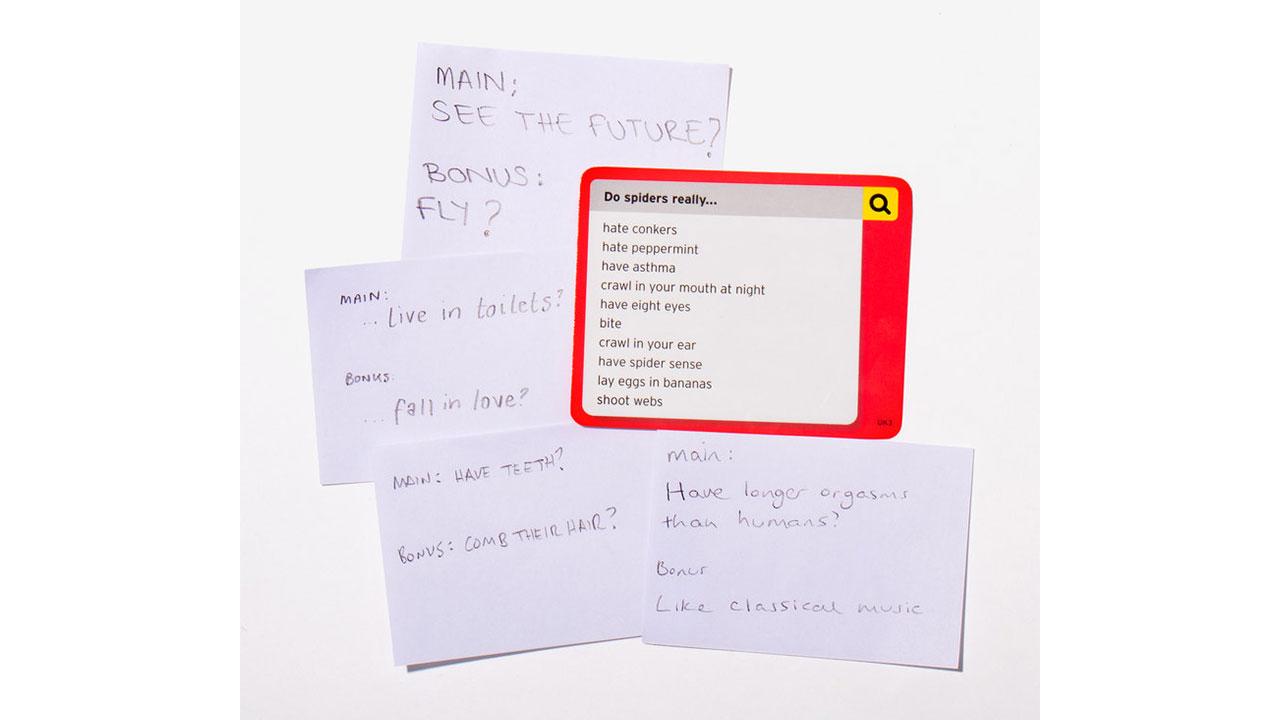 MAIN;
SEE THE FUTURE?
BONUS:
FLY?
Do spiders really...
hate conkers
hate peppermint
have asthma
crawl in your mouth at night
have eight eyes
bite
crawl in your ear
have spider sense
lay eggs in bananas
shoot webs
UK3
MAIN:
... live in toilets?
BONUS:
... fall in love?
MAIN: HAVE TEETH?
BONUS: COMB THEIR HAIR?
main:
Have longer orgasms
than humans?
Bonus
Like classical music